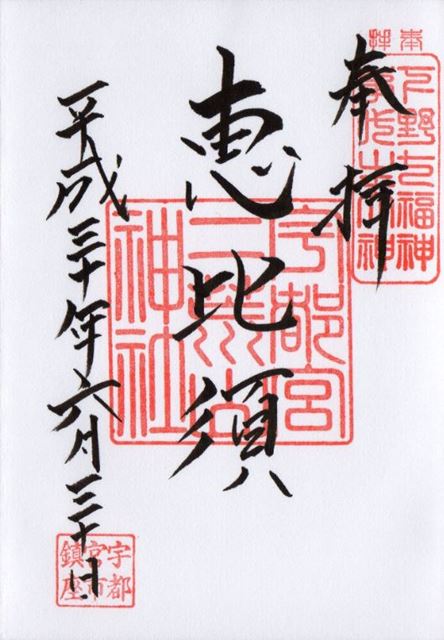 奉拝
下野七福神
事代主神
奉拝
恵比須
宇都宮
二荒山
神社
平成三十年六月三十日
宇都
宮市
鎮座